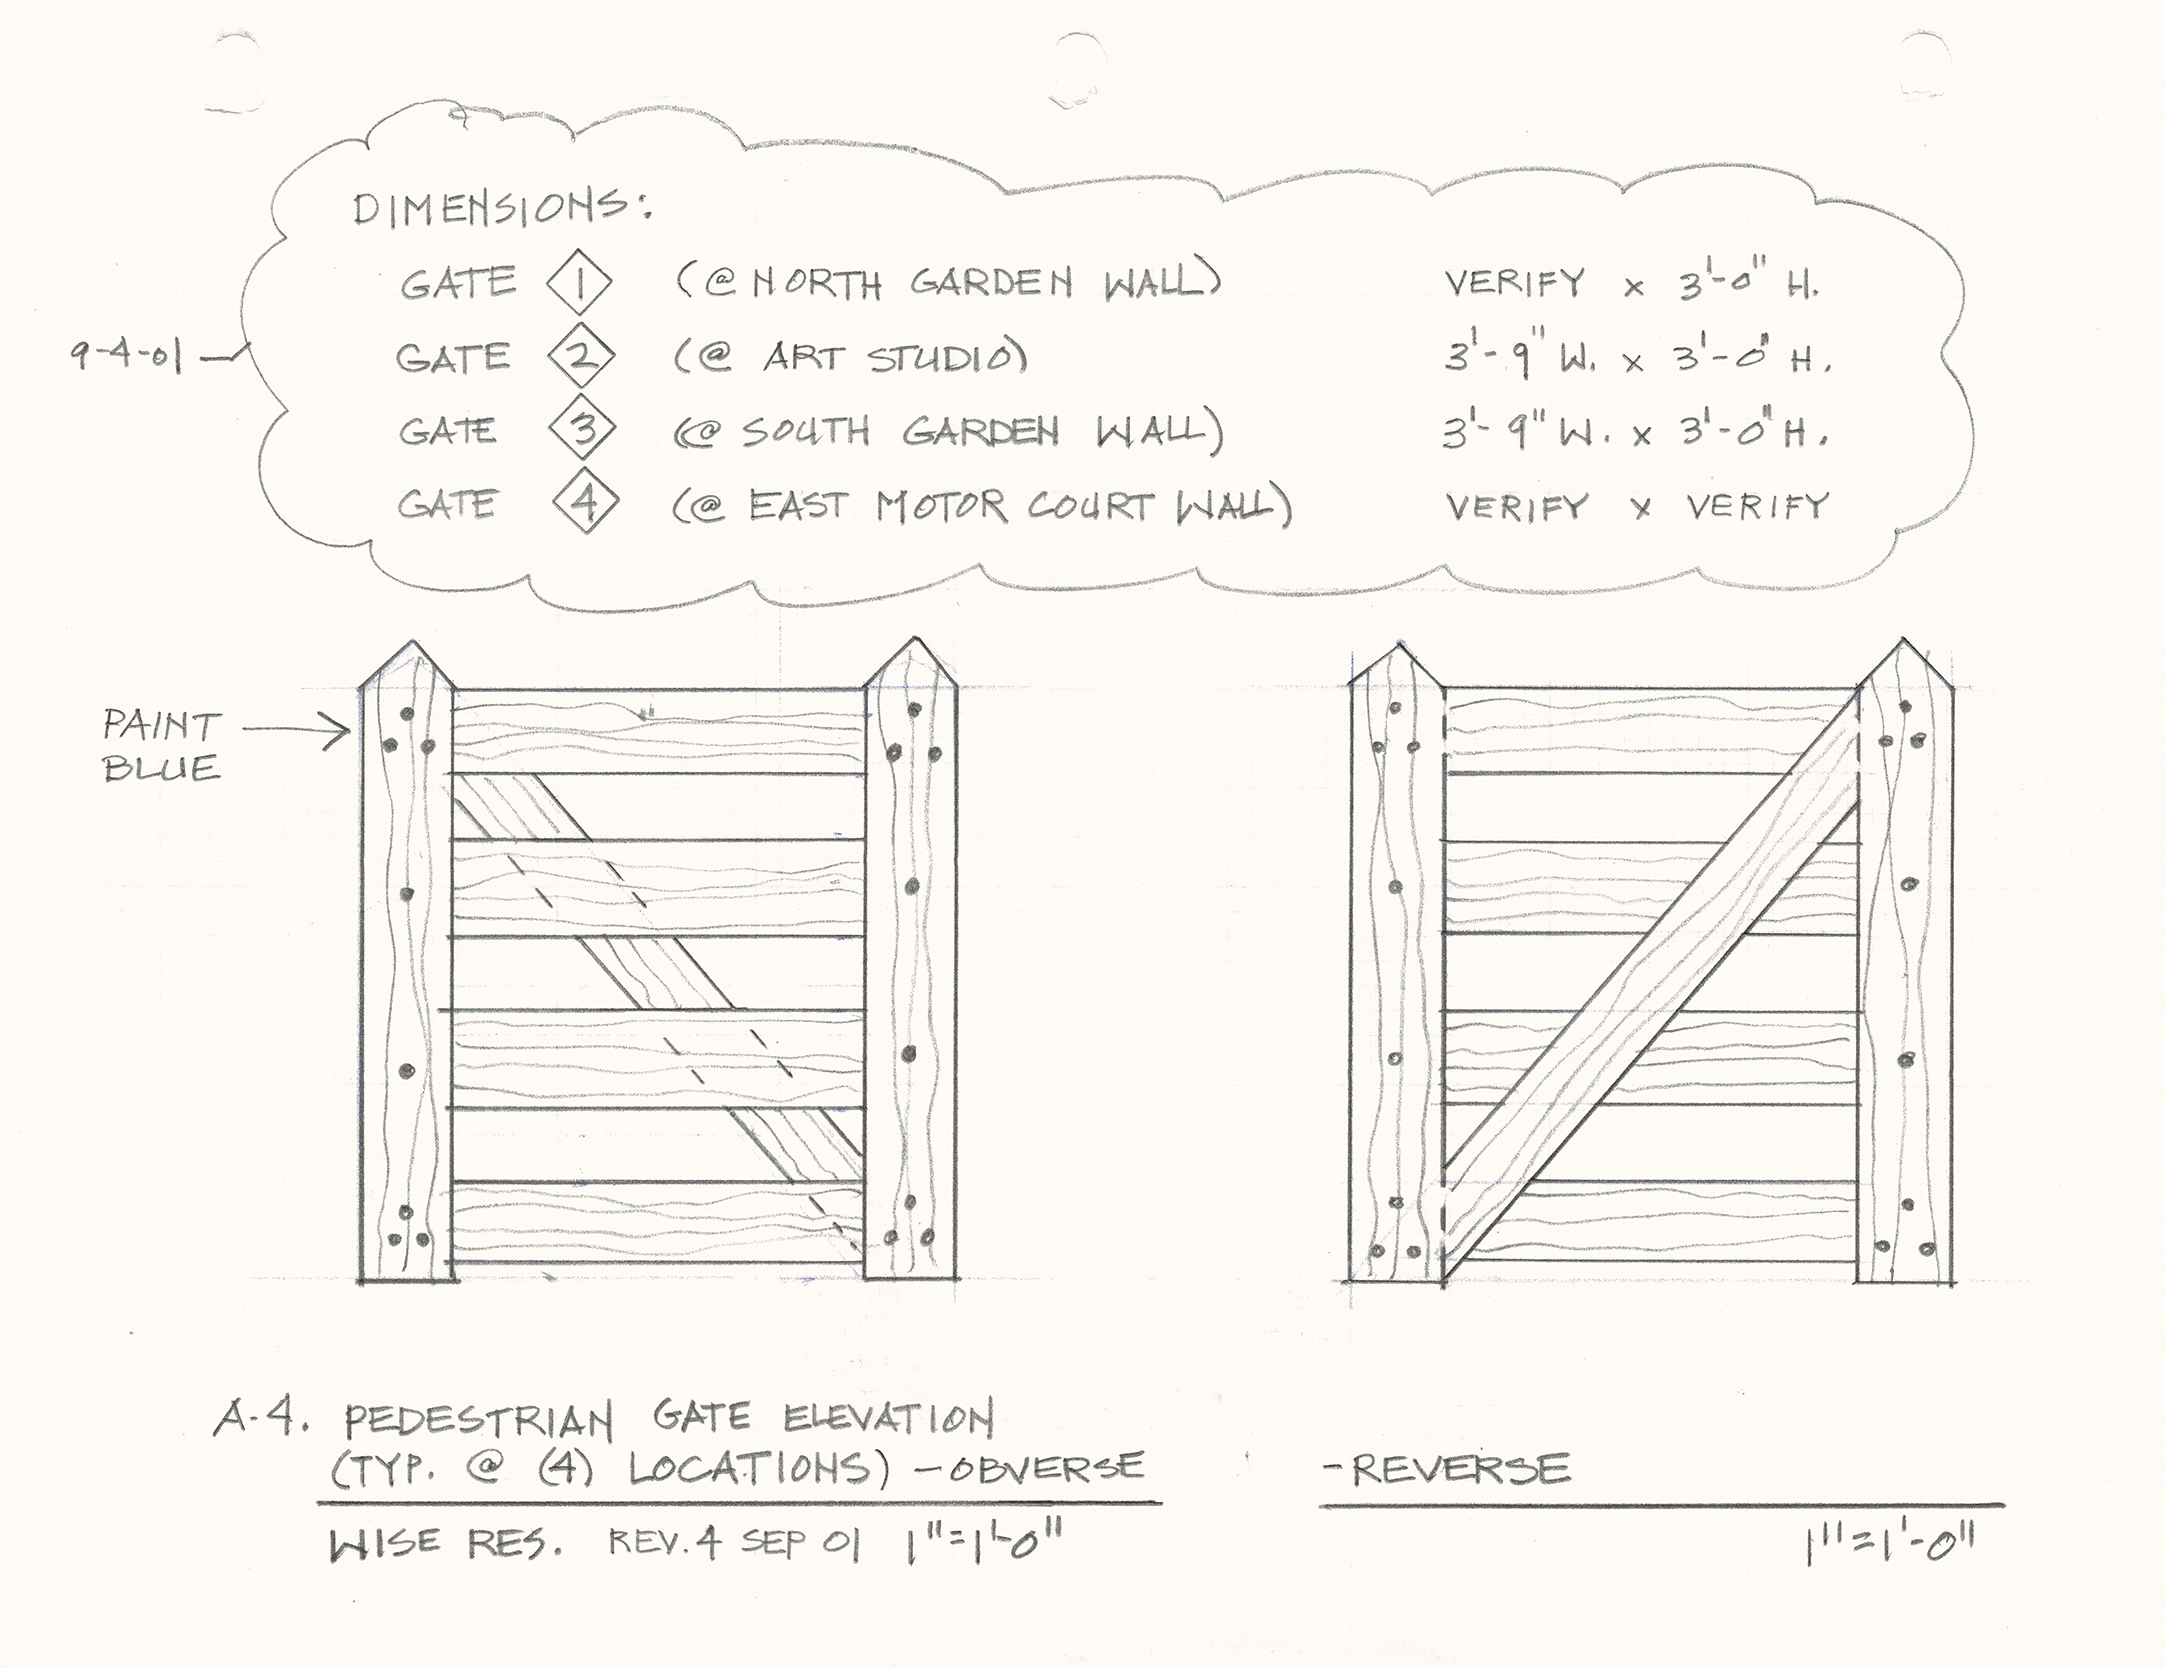 DIMENSIONS:
GATE 1 (@ NORTH GARDEN WALL) VERIFY x 3'-0" H.
GATE 2 (@ ART STUDIO) 3'-9" W. x 3'-0" H.
9-4-01
GATE 3 (@ SOUTH GARDEN WALL) 3'-9" W. x 3'-0" H.
GATE 4 (@ EAST MOTOR COURT WALL) VERIFY x VERIFY
PAINT
BLUE
A-4. PEDESTRIAN GATE ELEVATION
(TYP. @ (4) LOCATIONS) -OBVERSE
-REVERSE
WISE RES. REV. 4 SEP 01 1"=1'-0"
1"=1'-0"